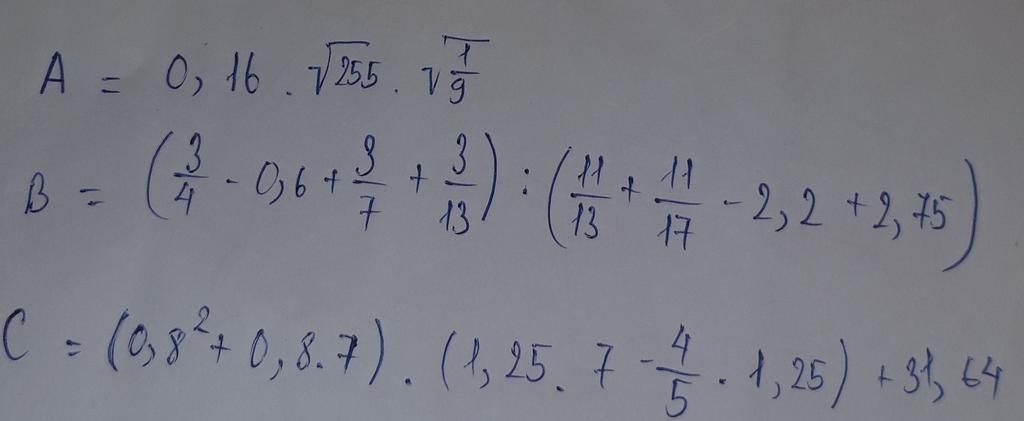 A = 0,16 . √255 . √(1/9)
B = (3/4 - 0,6 + 3/7 + 3/13) : (11/13 + 11/17 - 2,2 + 2,75)
C = (0,8² + 0,8.7) . (1,25 . 7 - 4/5 . 1,25) + 31,64